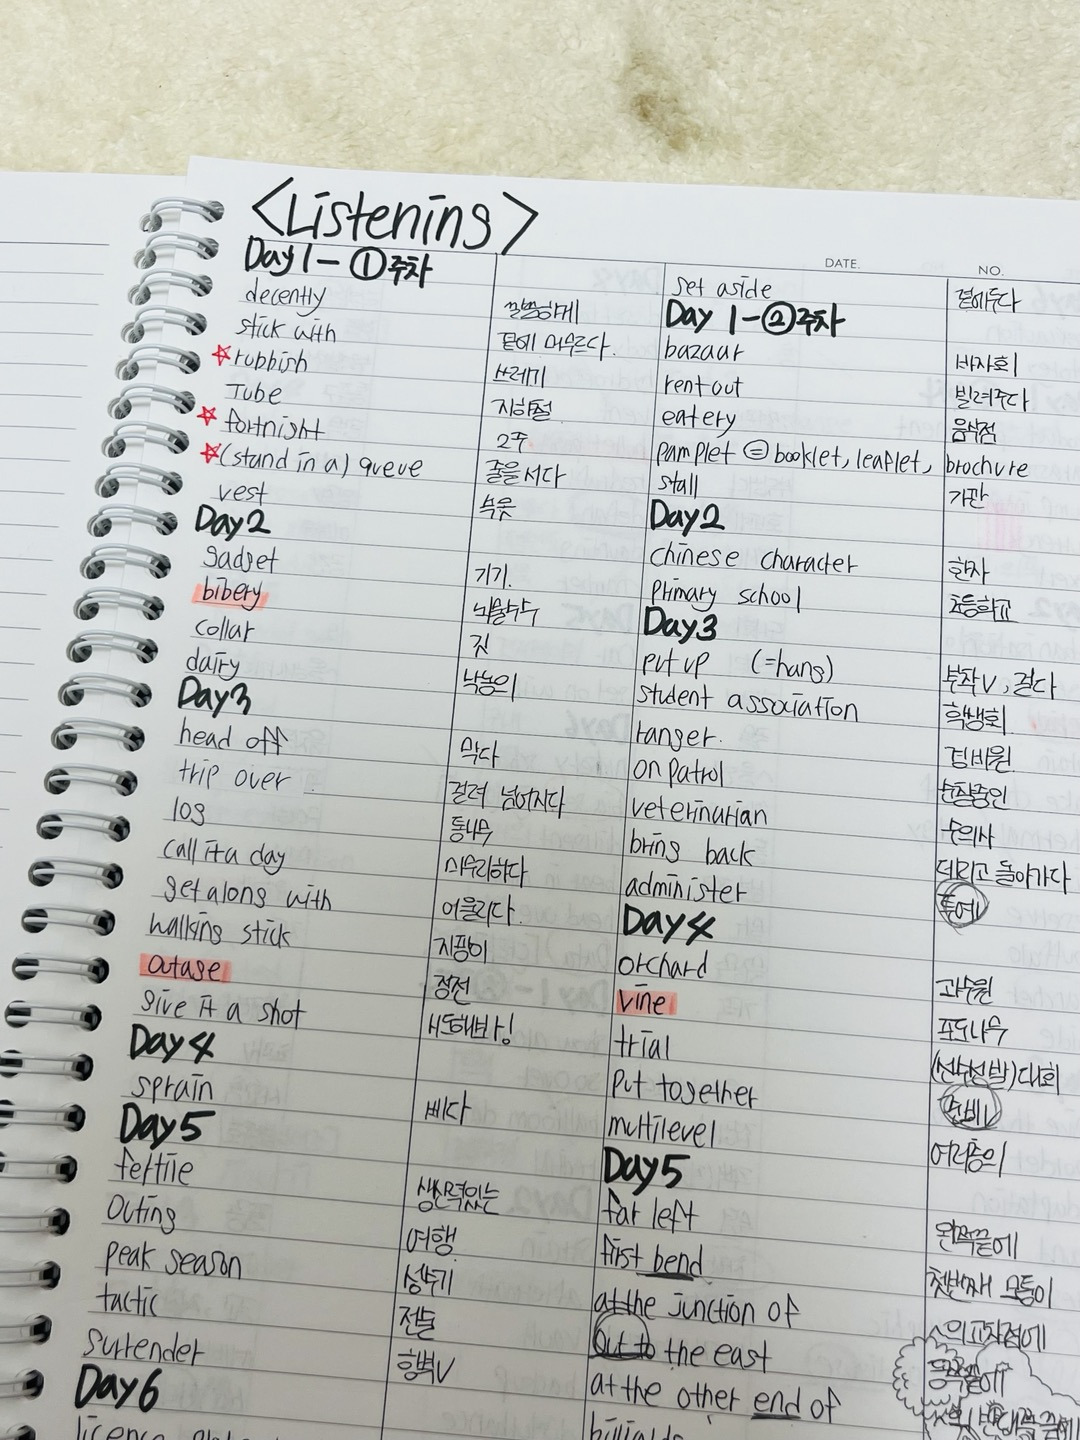 <Listening>
Day 1 - ① 주차
decently 깔끔하게
stick with 곁에 머무르다.
☆ rubbish 쓰레기
Tube 지하철
☆ fortnight 2주
☆ (stand in a) queue 줄을 서다
vest 속옷
Day 2
gadget 기기.
bibery 뇌물수수
collar 깃
dairy 낙농의
Day 3
head off 막다
trip over 걸려 넘어지다
log 통나무
call it a day 마무리하다
get along with 어울리다.
walking stick 지팡이
outage 정전
give it a shot 시도해봐!
Day 4
sprain 삐다
Day 5
fertile 생산력있는
outing 여행
peak season 성수기
tactic 전술
surrender 항복V
Day 6
DATE. NO.
set aside 곁에두다
Day 1 - ② 주차
bazaar 바자회
rent out 빌려주다
eatery 음식점
pamplet = booklet, leaflet, brochure
stall 가판
Day 2
Chinese character 한자
primary school 초등학교
Day 3
put up (=hang) 부착V, 걸다
student association 학생회
ranger. 경비원.
on patrol 순찰중인
veterinarian 수의사
bring back 데리고 돌아가다
administer 투여V
Day 4
orchard 과수원
vine 포도나무
trial (선수선발)대회
put together 준비V
multilevel 여러층의
Day 5
far left 왼쪽끝에
first bend 첫번째 모퉁이
at the junction of ~의 교차점에
out to the east 동쪽끝에
at the other end of